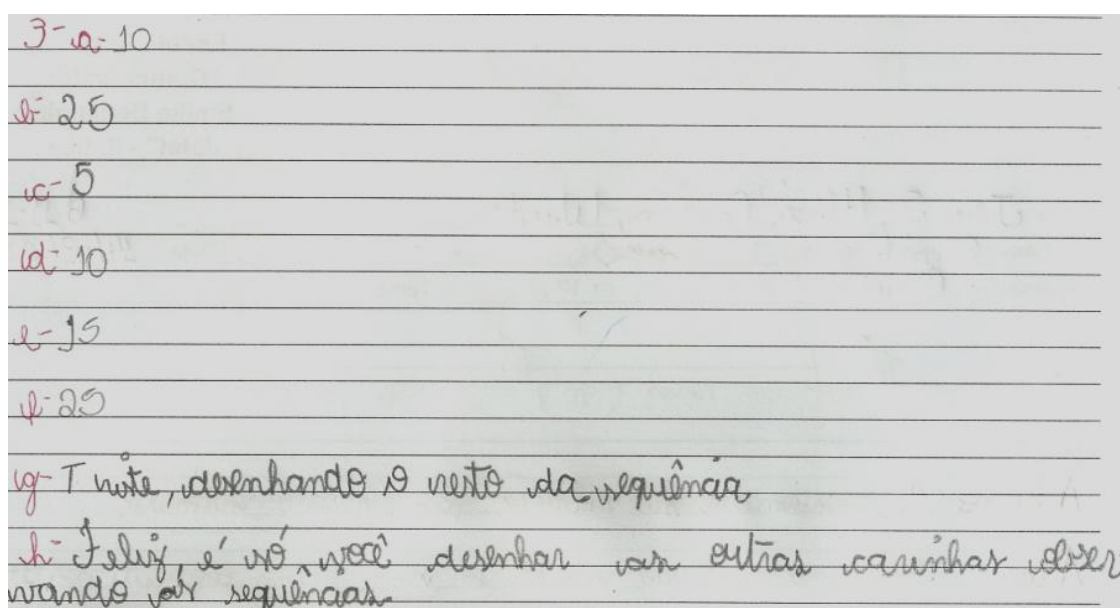 3-a-10
b-25
c-5
d-10
e-15
f-25
g-Triste, desenhando o resto da sequência
h-Feliz, é só você desenhar as outras carinhas obser
vando as sequências.